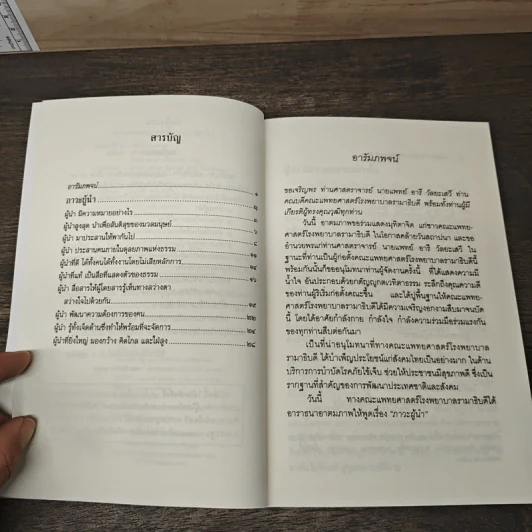 สารบัญ
อารัมภพจน์ ๑
ภาวะผู้นำ ๒
ผู้นำ มีความหมายอย่างไร ๓
ผู้นำสูงสุด นำเพื่อสันติสุขของมวลมนุษย์ ๖
ผู้นำ มาประสานให้พากันไป ๘
ผู้นำ ประสานคนภายในดุลยภาพแห่งธรรม ๑๑
ผู้นำที่ดี ได้ทั้งคนได้ทั้งงานโดยไม่เสียหลักการ ๑๔
ผู้นำที่แท้ เป็นสื่อที่แสดงตัวของธรรม ๑๖
ผู้นำ สื่อสารให้ผู้โดยสารรู้เส้นทางสว่างตา
สว่างใจไปด้วยกัน ๑๙
ผู้นำ พัฒนาความต้องการของคน ๒๒
ผู้นำ รู้ทั้งเจ็ดด้านซึ่งทำให้พร้อมที่จะจัดการ ๒๔
ผู้นำที่ยิ่งใหญ่ มองกว้าง คิดไกล และใฝ่สูง ๒๘
อารัมภพจน์
ขอเจริญพร ท่านศาสตราจารย์ นายแพทย์ อารี วัลยะเสวี ท่าน
คณบดีคณะแพทยศาสตร์โรงพยาบาลรามาธิบดี พร้อมทั้งท่านผู้มี
เกียรติผู้ทรงคุณวุฒิทุกท่าน
วันนี้ อาตมภาพขอร่วมแสดงมุทิตาจิต แก่ชาวคณะแพทย-
ศาสตร์โรงพยาบาลรามาธิบดี ในโอกาสคล้ายวันสถาปนา และขอ
อำนวยพรแก่ท่านศาสตราจารย์ นายแพทย์ อารี วัลยะเสวี ใน
ฐานะที่ท่านเป็นผู้ก่อตั้งคณะแพทยศาสตร์โรงพยาบาลรามาธิบดีนี้
พร้อมกันนั้นก็ขออนุโมทนาท่านผู้จัดงานครั้งนี้ ที่ได้แสดงความมี
น้ำใจ อันประกอบด้วยกตัญญูกตเวทิตาธรรม ระลึกถึงคุณความดี
ของท่านผู้ริเริ่มก่อตั้งคณะขึ้น และได้ปูพื้นฐานให้คณะแพทย-
ศาสตร์โรงพยาบาลรามาธิบดีได้มีความเจริญงอกงามสืบมาจนบัด
นี้ โดยได้อาศัยกำลังกาย กำลังใจ กำลังความร่วมมือร่วมแรงกัน
ของทุกท่านสืบต่อกันมา
เป็นที่น่าอนุโมทนาที่ทางคณะแพทยศาสตร์โรงพยาบาล
รามาธิบดี ได้บำเพ็ญประโยชน์แก่สังคมไทยเป็นอย่างมาก ในด้าน
บริการการบำบัดโรคภัยไข้เจ็บ ช่วยให้ประชาชนมีสุขภาพดี ซึ่งเป็น
รากฐานที่สำคัญของการพัฒนาประเทศชาติและสังคม
วันนี้ ทางคณะแพทยศาสตร์โรงพยาบาลรามาธิบดีได้
อาราธนาอาตมภาพให้พูดเรื่อง "ภาวะผู้นำ"